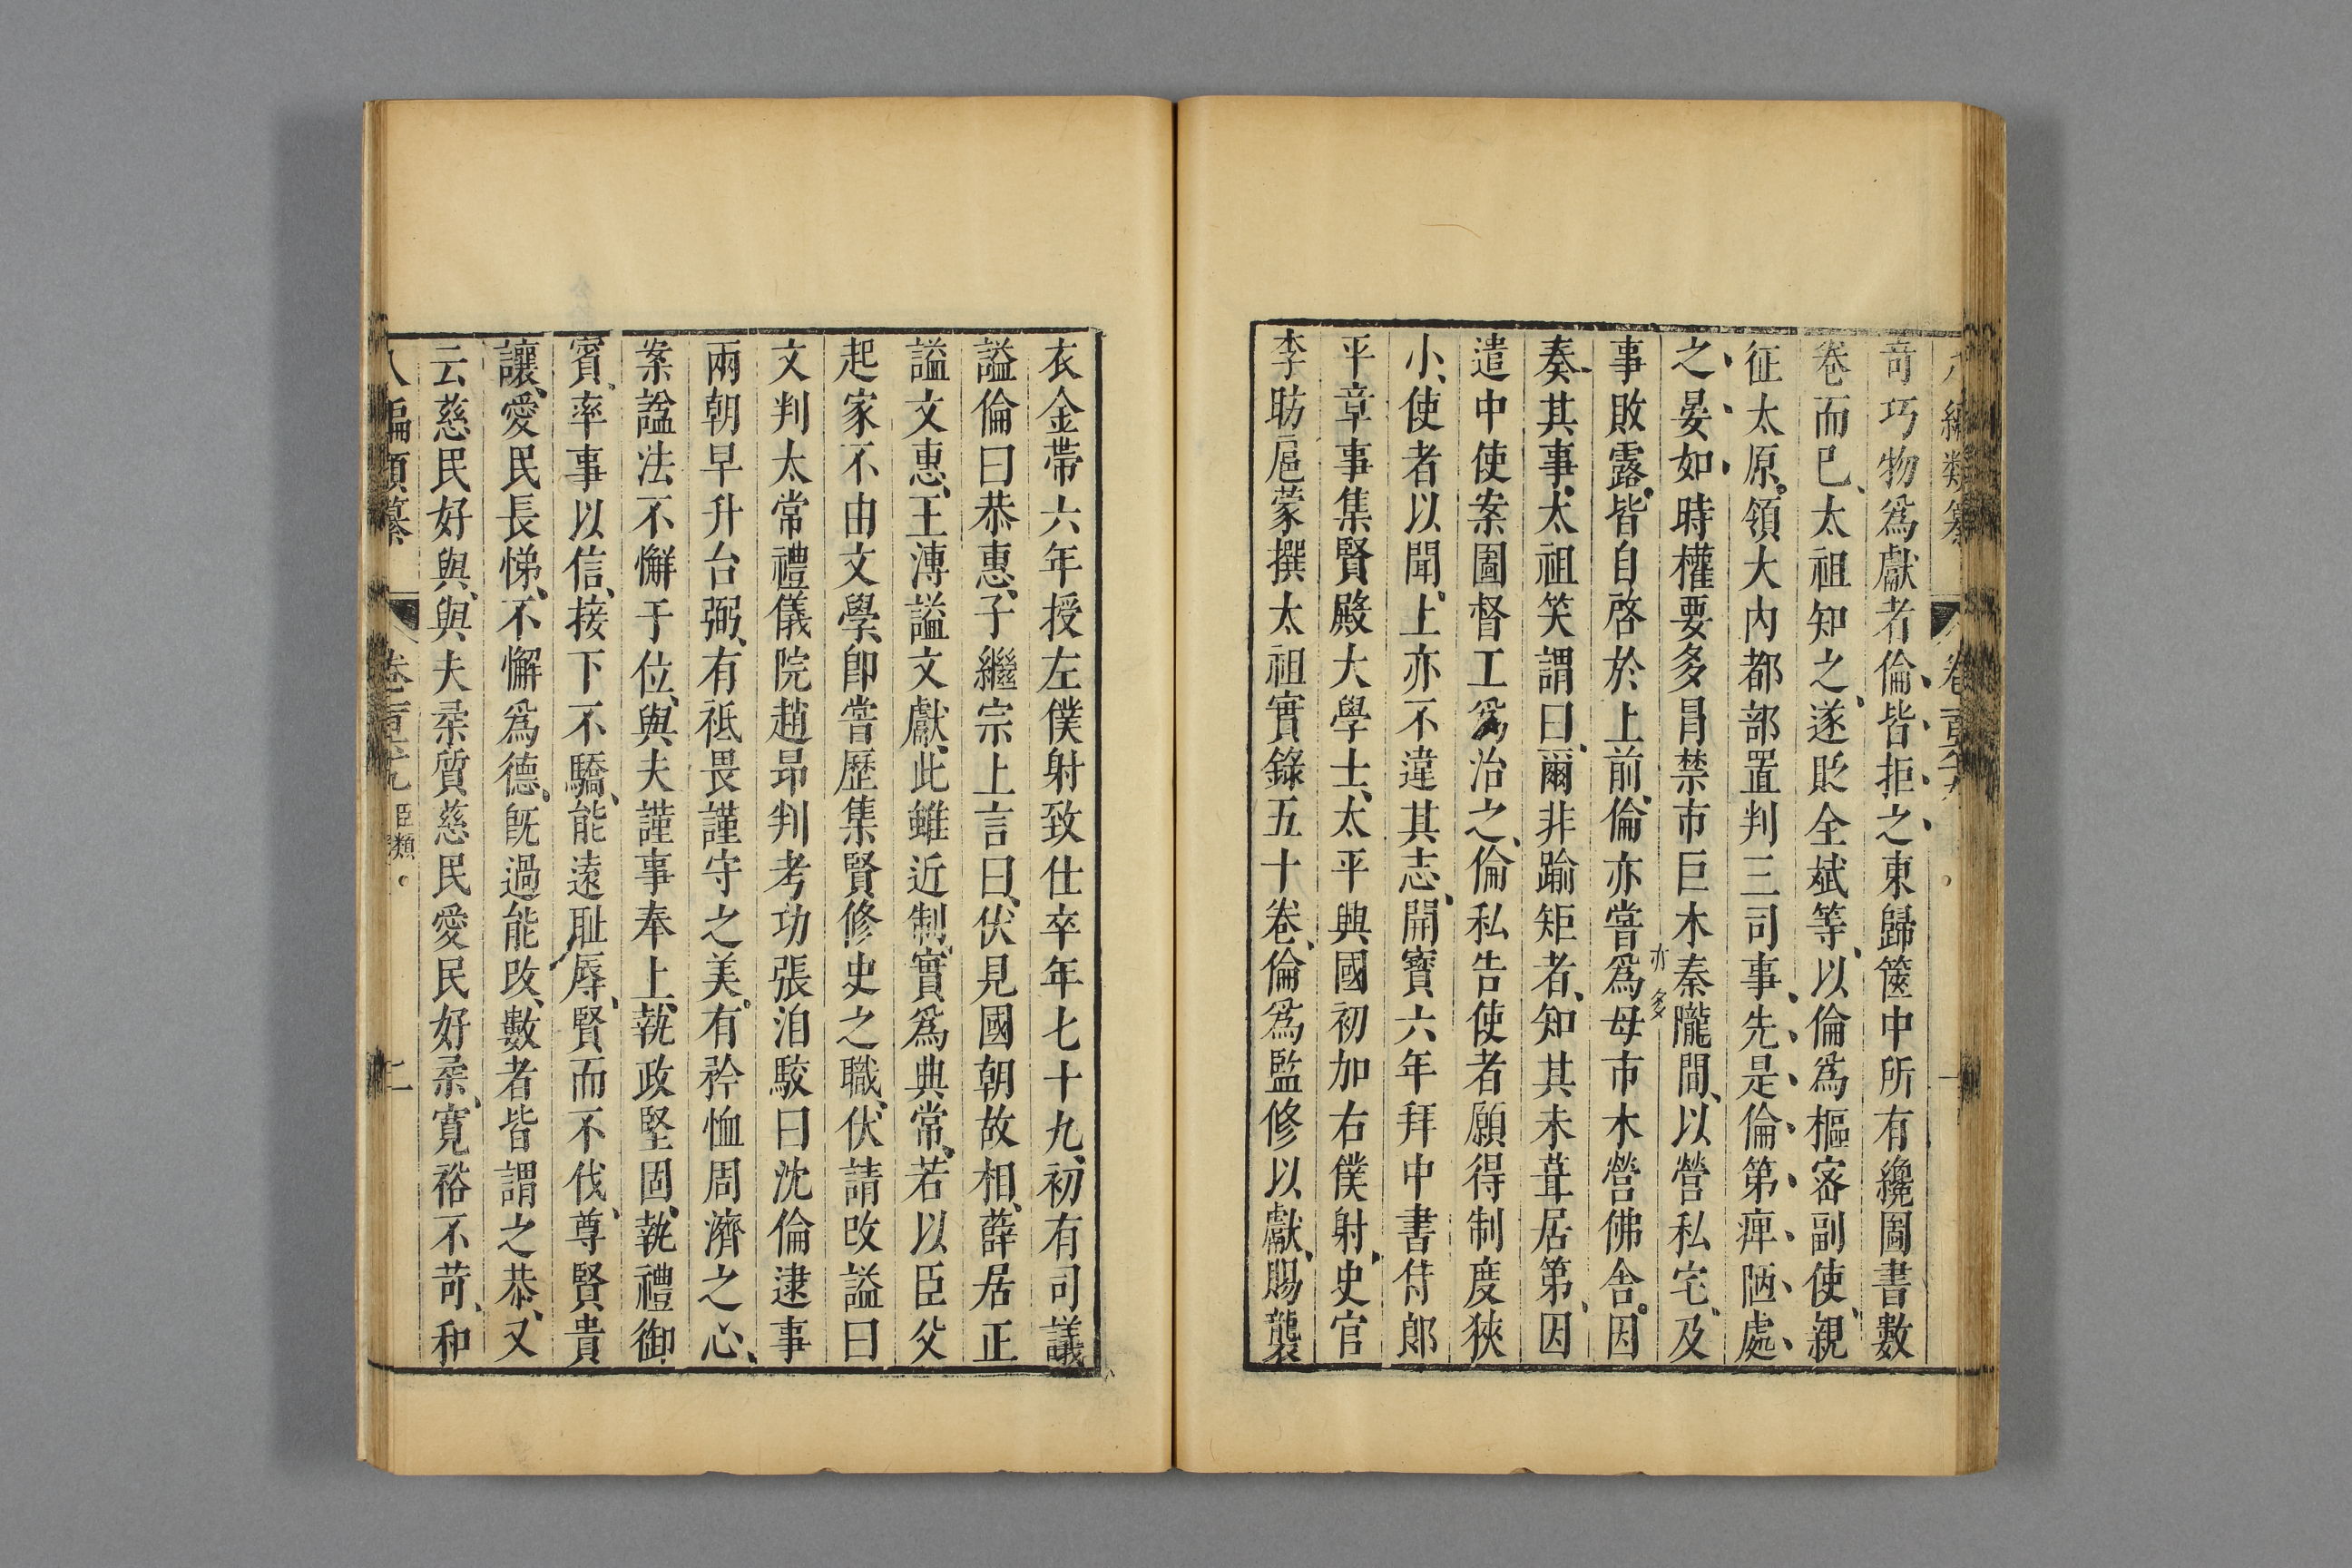 八編類纂 卷一百九
奇巧物爲獻者倫皆拒之東歸篋中所有纔圖書數
卷而已太祖知之遂貶全斌等以倫爲樞宻副使親
征太原領大内都部置判三司事先是倫第痺陋處
之晏如時權要多冒禁市巨木秦隴間以營私宅及
事敗露皆自啓於上前倫亦嘗爲母市木營佛舍因
亦多
奏其事太祖笑謂曰爾非踰矩者知其未葺居第因
遣中使案圖督工爲治之倫私告使者願得制度狹
小使者以聞上亦不違其志開寳六年拜中書侍郎
平章事集賢殿大學士太平興國初加右僕射史官
李昉扈蒙撰太祖實錄五十卷倫爲監修以獻賜襲
衣金帶六年授左僕射致仕卒年七十九初有司議
謚倫曰恭惠子繼宗上言曰伏見國朝故相薛居正
謚文惠王溥謚文獻此雖近制實爲典常若以臣父
起家不由文學卽嘗歷集賢修史之職伏請改謚曰
文判太常禮儀院趙昂判考功張洎駮曰沈倫逮事
兩朝早升台弼有祗畏謹守之美有矜恤周濟之心
案諡法不懈于位與夫謹事奉上執政堅固執禮御
賓率事以信接下不驕能遠耻辱賢而不伐尊賢貴
讓愛民長悌不懈爲德旣過能改數者皆謂之恭又
云慈民好與與夫柔質慈民愛民好柔寛裕不苛和
八編類纂 卷一百九 臣類 二